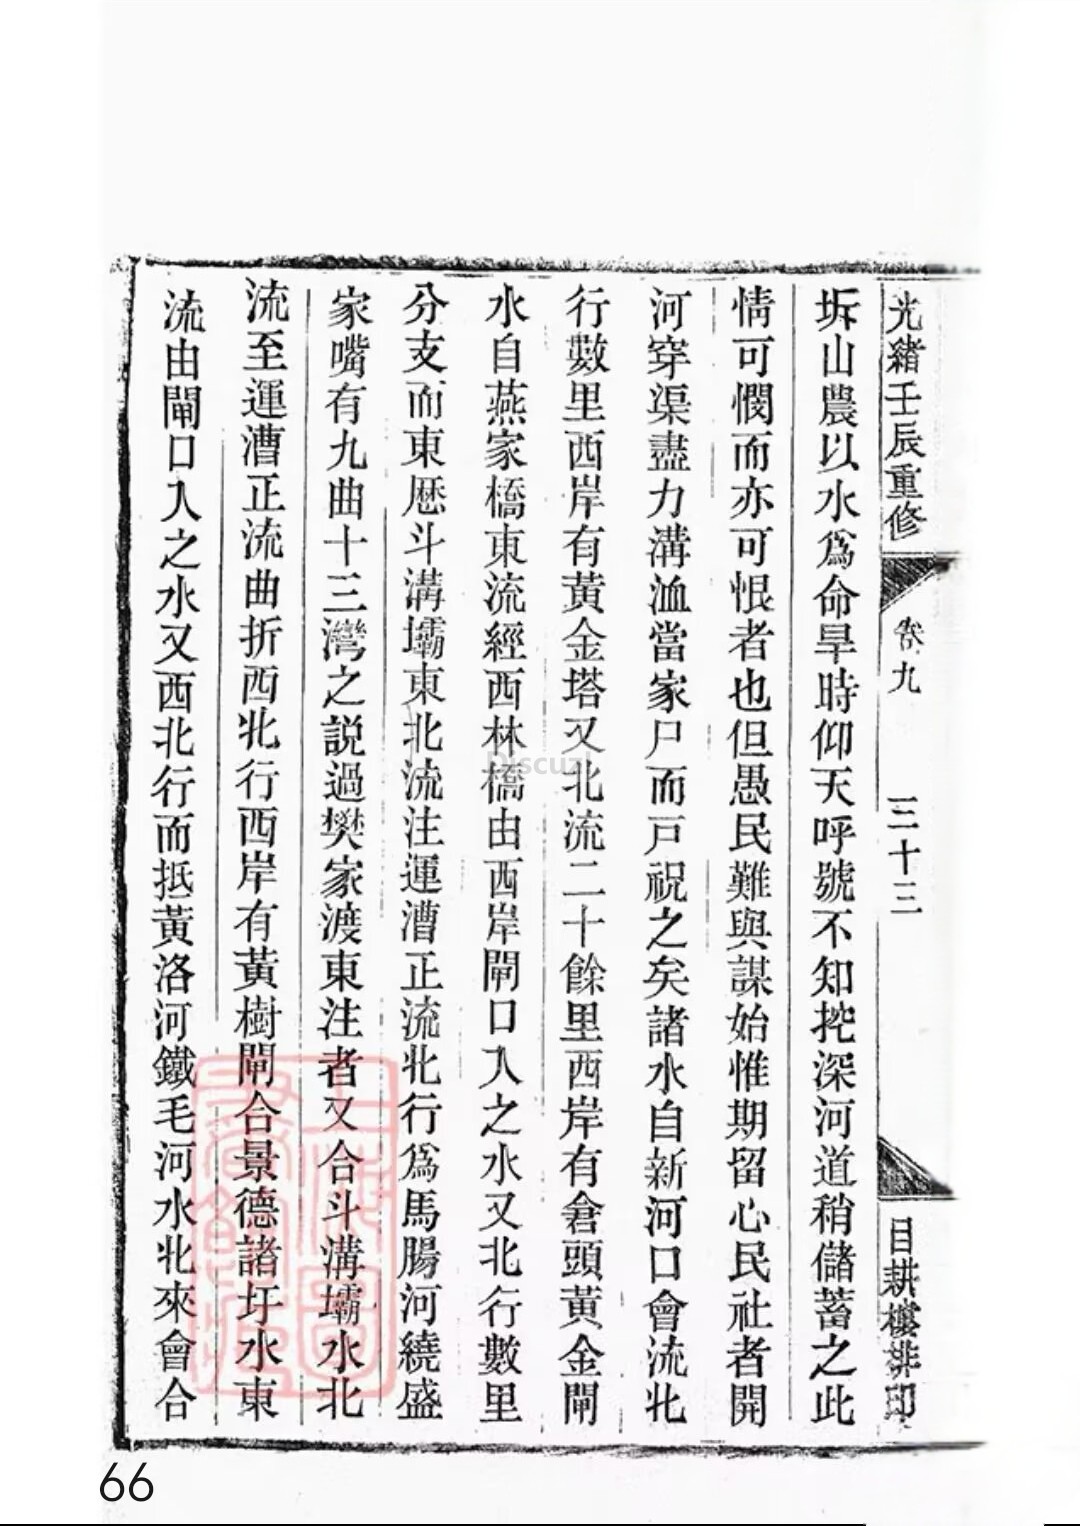 光緒壬辰重修
卷九
三十三
目耕樓排印
坼山農以水爲命旱時仰天呼號不知挖深河道稍儲蓄之此
情可憫而亦可恨者也但愚民難與謀始惟期留心民社者開
河穿渠盡力溝洫當家尸而戸祝之矣諸水自新河口會流北
行數里西岸有黃金塔又北流二十餘里西岸有倉頭黃金閘
水自燕家橋東流經西林橋由西岸閘口入之水又北行數里
分支而東歷斗溝壩東北流注運漕正流北行爲馬腸河繞盛
家嘴有九曲十三灣之説過樊家渡東注者又合斗溝壩水北
流至運漕正流曲折西北行西岸有黃樹閘合景德諸圩水東
流由閘口入之水又西北行而抵黃洛河鐵毛河水北來會合
Discuz!
66